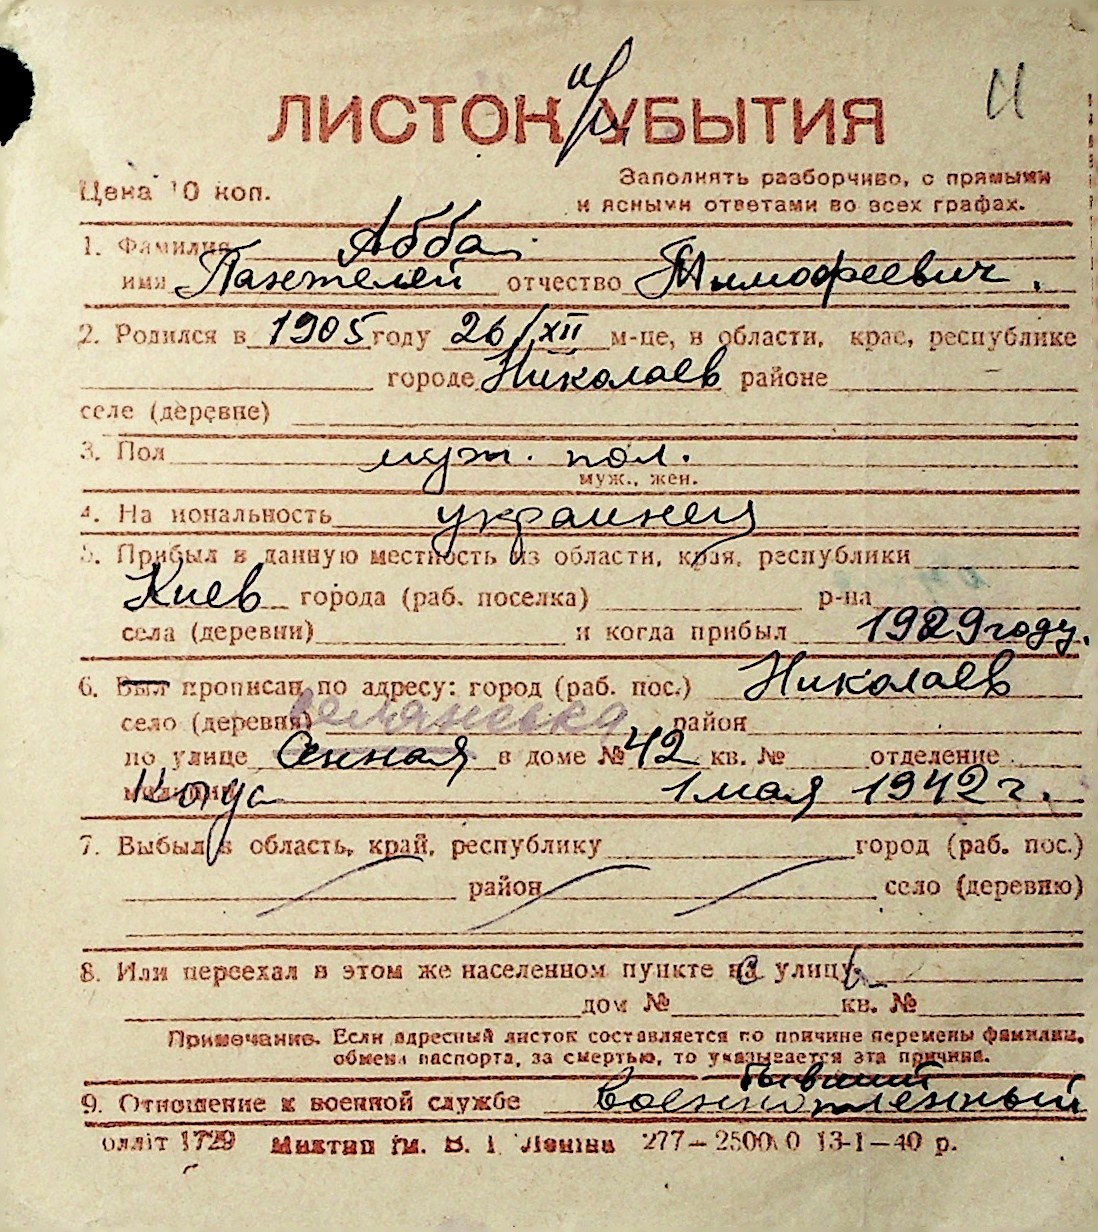 ЛИСТОК УБЫТИЯ
Цена 10 коп.
Заполнять разборчиво, с прямыми
и ясными ответами во всех графах.
1. Фамилия Абба
имя Пантелей отчество Тимофеевич.
2. Родился в 1905 году 26/XII м-це, в области, крае, республике
городе Николаев районе
селе (деревне)
3. Пол муж. пол.
муж., жен.
4. Национальность украинец
5. Прибыл в данную местность из области, края, республики
Киев города (раб. поселка) р-на
села (деревни) и когда прибыл 1929 году.
6. Был прописан по адресу: город (раб. пос.) Николаев
село (деревня) район
по улице Сенная в доме № 42 кв. № отделение
милиции Когда 1 мая 1942 г.
7. Выбыл в область, край, республику город (раб. пос.)
район село (деревню)
8. Или переехал в этом же населенном пункте на улицу
дом № кв. №
Примечание. Если адресный листок составляется по причине перемены фамилии,
обмена паспорта, за смертью, то указывается эта причина.
бывший
9. Отношение к военной службе военнопленный
олліт 1729 Миктип ім. В. І. Леніна 277—25000 13-1—40 р.